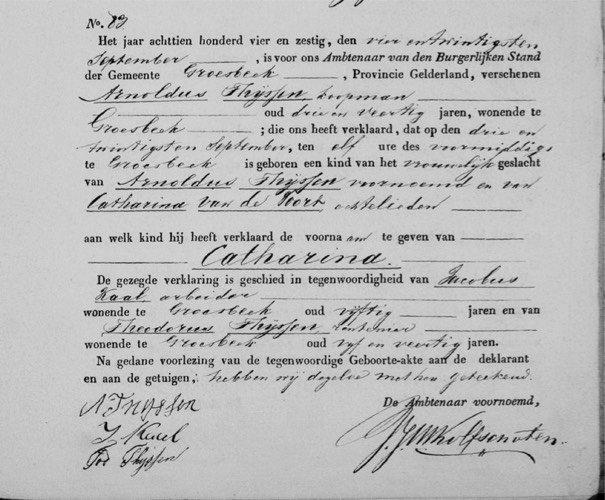 No. 83.
Het jaar achttien honderd vier en zestig, den vier entwintigsten
September, is voor ons Ambtenaar van den Burgerlijken Stand
der Gemeente Groesbeek, Provincie Gelderland, verschenen
Arnoldus Thijssen, koopman
oud drie en veertig jaren, wonende te
Groesbeek; die ons heeft verklaard, dat op den drie en
twintigsten September, ten elf ure des voormiddags
te Groesbeek is geboren een kind van het vrouwelijk geslacht
van Arnoldus Thijssen voornoemd en van
Catharina van de Poort echtelieden
aan welk kind hij heeft verklaard de voorna am te geven van
Catharina.
De gezegde verklaring is geschied in tegenwoordigheid van Jacobus
arbeider
wonende te Groesbeek oud vijftig jaren en van
Theodorus Thijssen
wonende te Groesbeek oud vyf en veertig jaren.
Na gedane voorlezing van de tegenwoordige Geboorte-akte aan de deklarant
en aan de getuigen, hebben wij dezelve met hen geteekend.
De Ambtenaar voornoemd,
A Thyssen
Thijssen